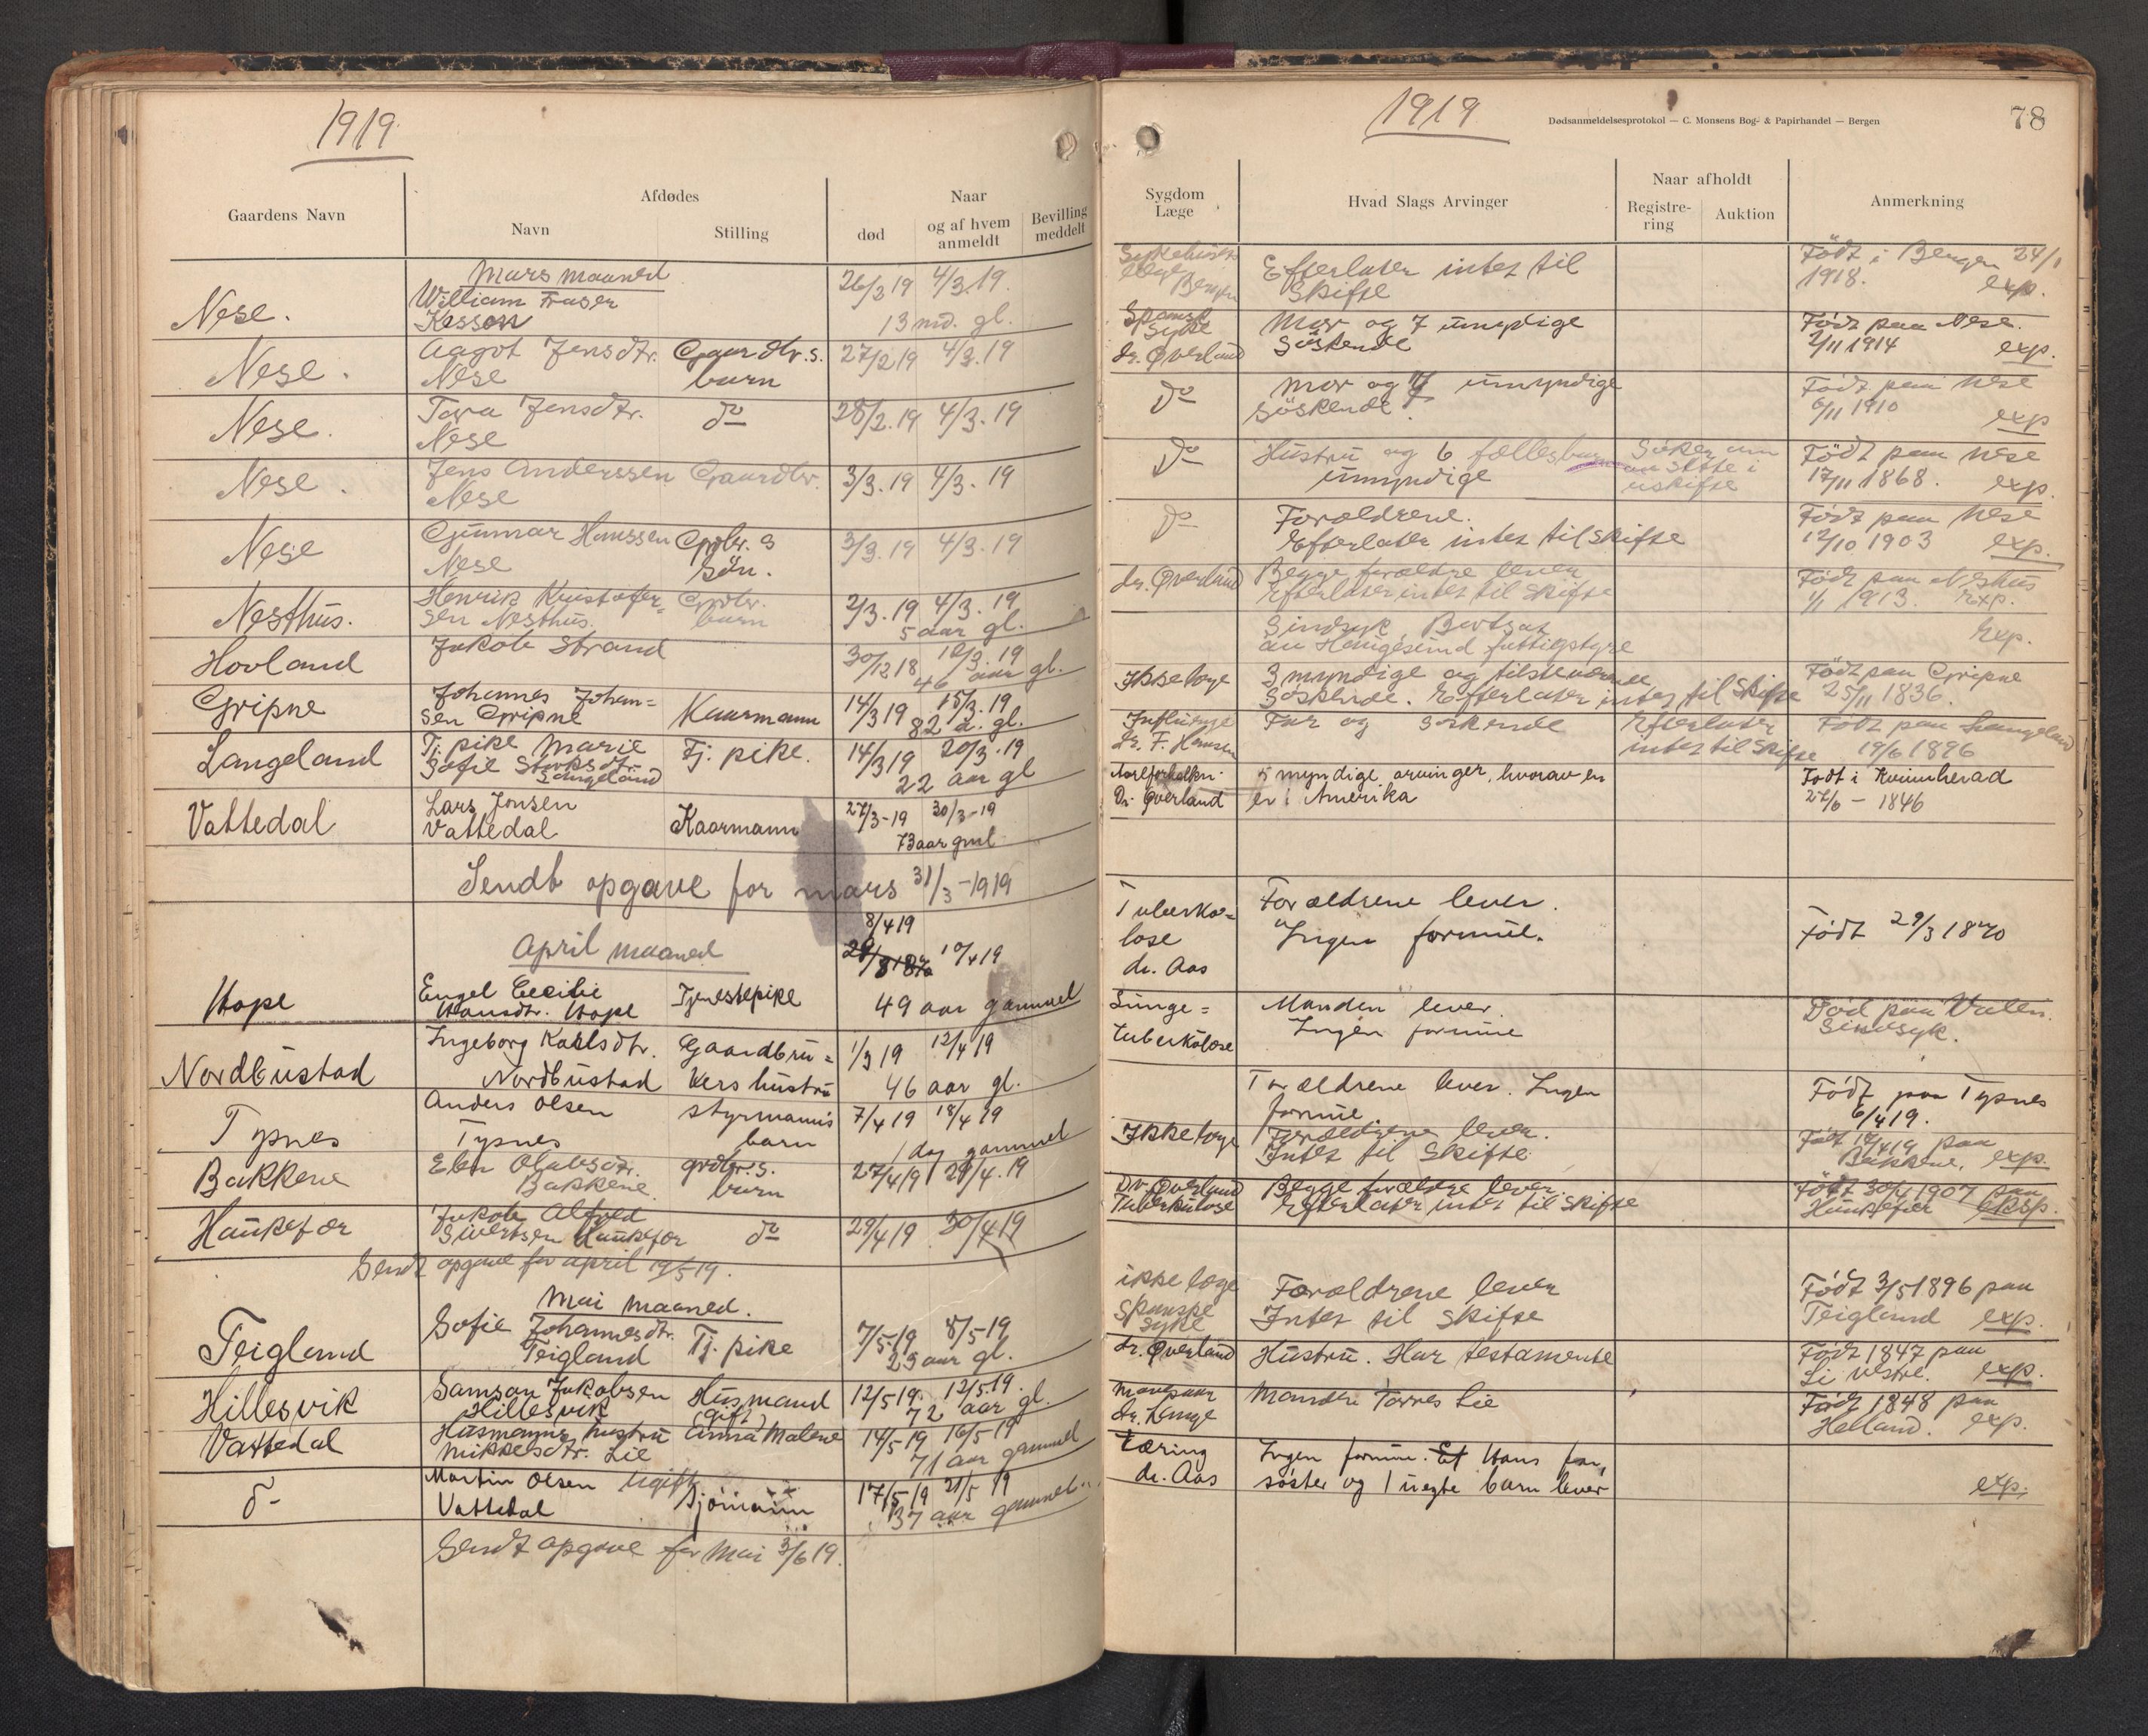 1919.
Gaardens Navn
Afdødes
Navn
Stilling
Naar
død
og af hvem anmeldt
Bevilling meddelt
Mars maaned
Nese.
William Fraser
26/2 19 4/3.19.
13 md. gl.
Nese.
Aagot Jensdtr.
Nese
Gaardbr.s.
barn
27/2 19 4/3.19
Nese.
Tora Jensdtr.
Nese
do
28/2.19 4/3.19
Nese.
Jens Anderssen
Nese
Gaardbr.
3/3.19 4/3.19
Nese
Gunnar Hanssen
Nese
Grdbr. s
Sön.
3/3.19 4/3.19
Nesthus.
Henrik Kristofer=
sen Nesthus.
Grdbr.
barn
2/3.19 4/3.19
5 aar gl.
Hovland
Jakob Strand
30/12 18 12/3.19
46 aar gl.
Gripne
Johannes Johan=
sen Gripne
Kaarmann
14/3 19 15/3.19
82 a. gl.
Langeland
Tj. pike Marie
Sofie
Langeland
Tj. pike.
14/3 19 20/3.19
22 aar gl
Vattedal
Lars Jonsen
Vattedal
Kaarmann
27/3-19 30/3-19
73 aar gml
Sendt opgave for mars 31/3-1919
April maaned
8/4 19
10/4 19
Hope
Engel Cecilie
Hansdtr. Hope
Tjenestepike
49 aar gammel
Nordbustad
Ingeborg Karlsdtr.
Nordbustad
Gaardbru=
kers hustru
1/3 19 12/4 19
46 aar gl.
Tysnes
Anders Olsen
Tysnes
styrmanns
barn
7/4 19 18/4 19
1 dag gammel
Bakkene
Olalsdtr.
Bakkene.
grdbr.s.
barn
27/4 19 29/4.19
Haukefær
Jakob Alfred
Sivertsen Haukefær
do
29/4 19 30/4 19
Sendt opgave for april 19/5 19.
Mai maaned.
Teigland
Sofie Johannesdtr.
Teigland
Tj. pike
7/5 19 8/5 19
23 aar gl.
Hillesvik
Samson Jakobsen
Hillesvik
Husmand
(gift)
12/5 19. 12/5.19.
72 aar gl.
Vattedal
Husmanns hustru Anna Malene
Mikkelsdtr. Lie
14/5 19 16/5 19
71 aar gammel
d-
Martin Olsen Ugift
Vattedal
Sjömann
17/5 19 21/5 19
37 aar gammel
Sendt opgave for Mai 3/6 19.
1919
Dødsanmeldelsesprotokol — C. Monsens Bog- & Papirhandel — Bergen
78
Sygdom
Læge
Hvad Slags Arvinger
Naar afholdt
Registre-
ring
Auktion
Anmerkning
Sykehus
læge
Bergen
Efterlater intet til
Skifte
Födt i Bergen 24/1
1918. exp.
Spansk
Syke
dr. Øverland
Mor og 7 umyndige
Söskende
Födt paa Nese.
2/11 1914 exp.
do
Mor og 7 umyndige
Söskende.
Födt paa Nese
6/11 1910 exp
do
Hustru og 6 fællesbarn
umyndige
Söker om
at sitte i
uskifte
Födt paa Nese
17/11 1868. exp.
do
Forældrene.
Efterlater intet til skifte
Födt paa Nese
12/10 1903 exp.
dr. Øverland
Begge forældre lever
Efterlater intet til Skifte
Födt paa Neshus
1/1 1913. Exp.
Sindsyk. Bortsat
av Haugesund fattigstyre
Exp.
Ikke læge
3 myndige og tilstedeværende
Söskende. Efterlater intet til Skifte
Födt paa Gripne
25/11 1836.
Influenza
dr. F. Hansen
Far og Söskende
Efterlater
intet til Skifte
Födt paa Langeland
19/6 1896
Aareforkalkn.
Dr. Øverland
5 myndige arvinger, hvorav en
er i Amerika
Født i Kvinnherad
27/6 - 1846
Tuberko=
lose
dr. Aas
Forældrene lever.
Ingen formue.
Födt 29/3 1870
Lunge=
tuberkulose
Manden lever.
Ingen formue
Död paa Valen.
Sindsyk.
Forældrene lever. Ingen
formue.
Födt paa Tysnes
6/4 19.
Ikke læge
Forældrene lever.
Intet til Skifte.
Födt 19 paa
Bakkene. exp.
Dr. Øverland
Tuberkulose
Begge forældre lever
Efterlater intet til Skifte
Födt 30/4 1907 paa
Haukefær eksp.
ikke læge
Spanske
syke
Forældrene lever
Intet til Skifte
Födt 3/5 1896 paa
Teigland exp.
dr. Øverland
Hustru. Har testamente
Födt 1847 paa
Li vestre. exp.
dr. Lange
Manden Torres Lie
Födt 1848 paa
Helland. exp.
Tæring
dr. Aas
Ingen formue. Et Hans far,
söster og 1 uegte barn lever
exp.